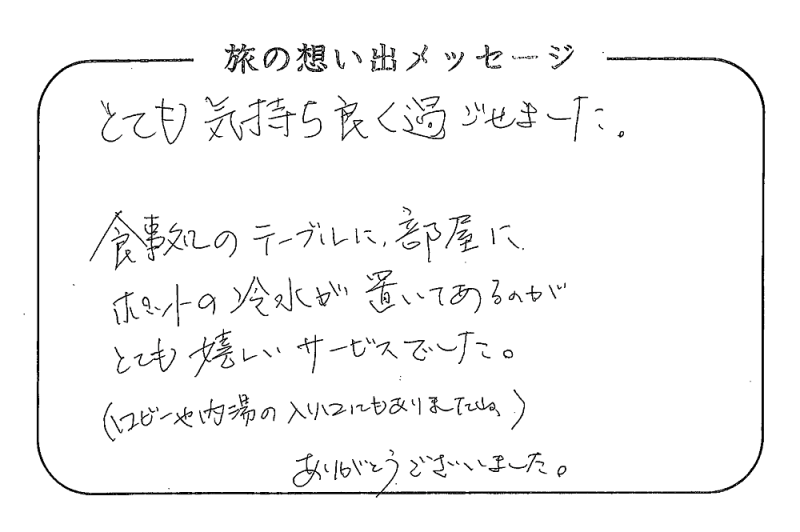 旅の想い出メッセージ
とても気持ち良く過ごせました。
食事処のテーブルに、部屋に
ポットの冷水が置いてあるのが
とても嬉しいサービスでした。
(ロビーや内湯の入り口にもありましたね。)
ありがとうございました。